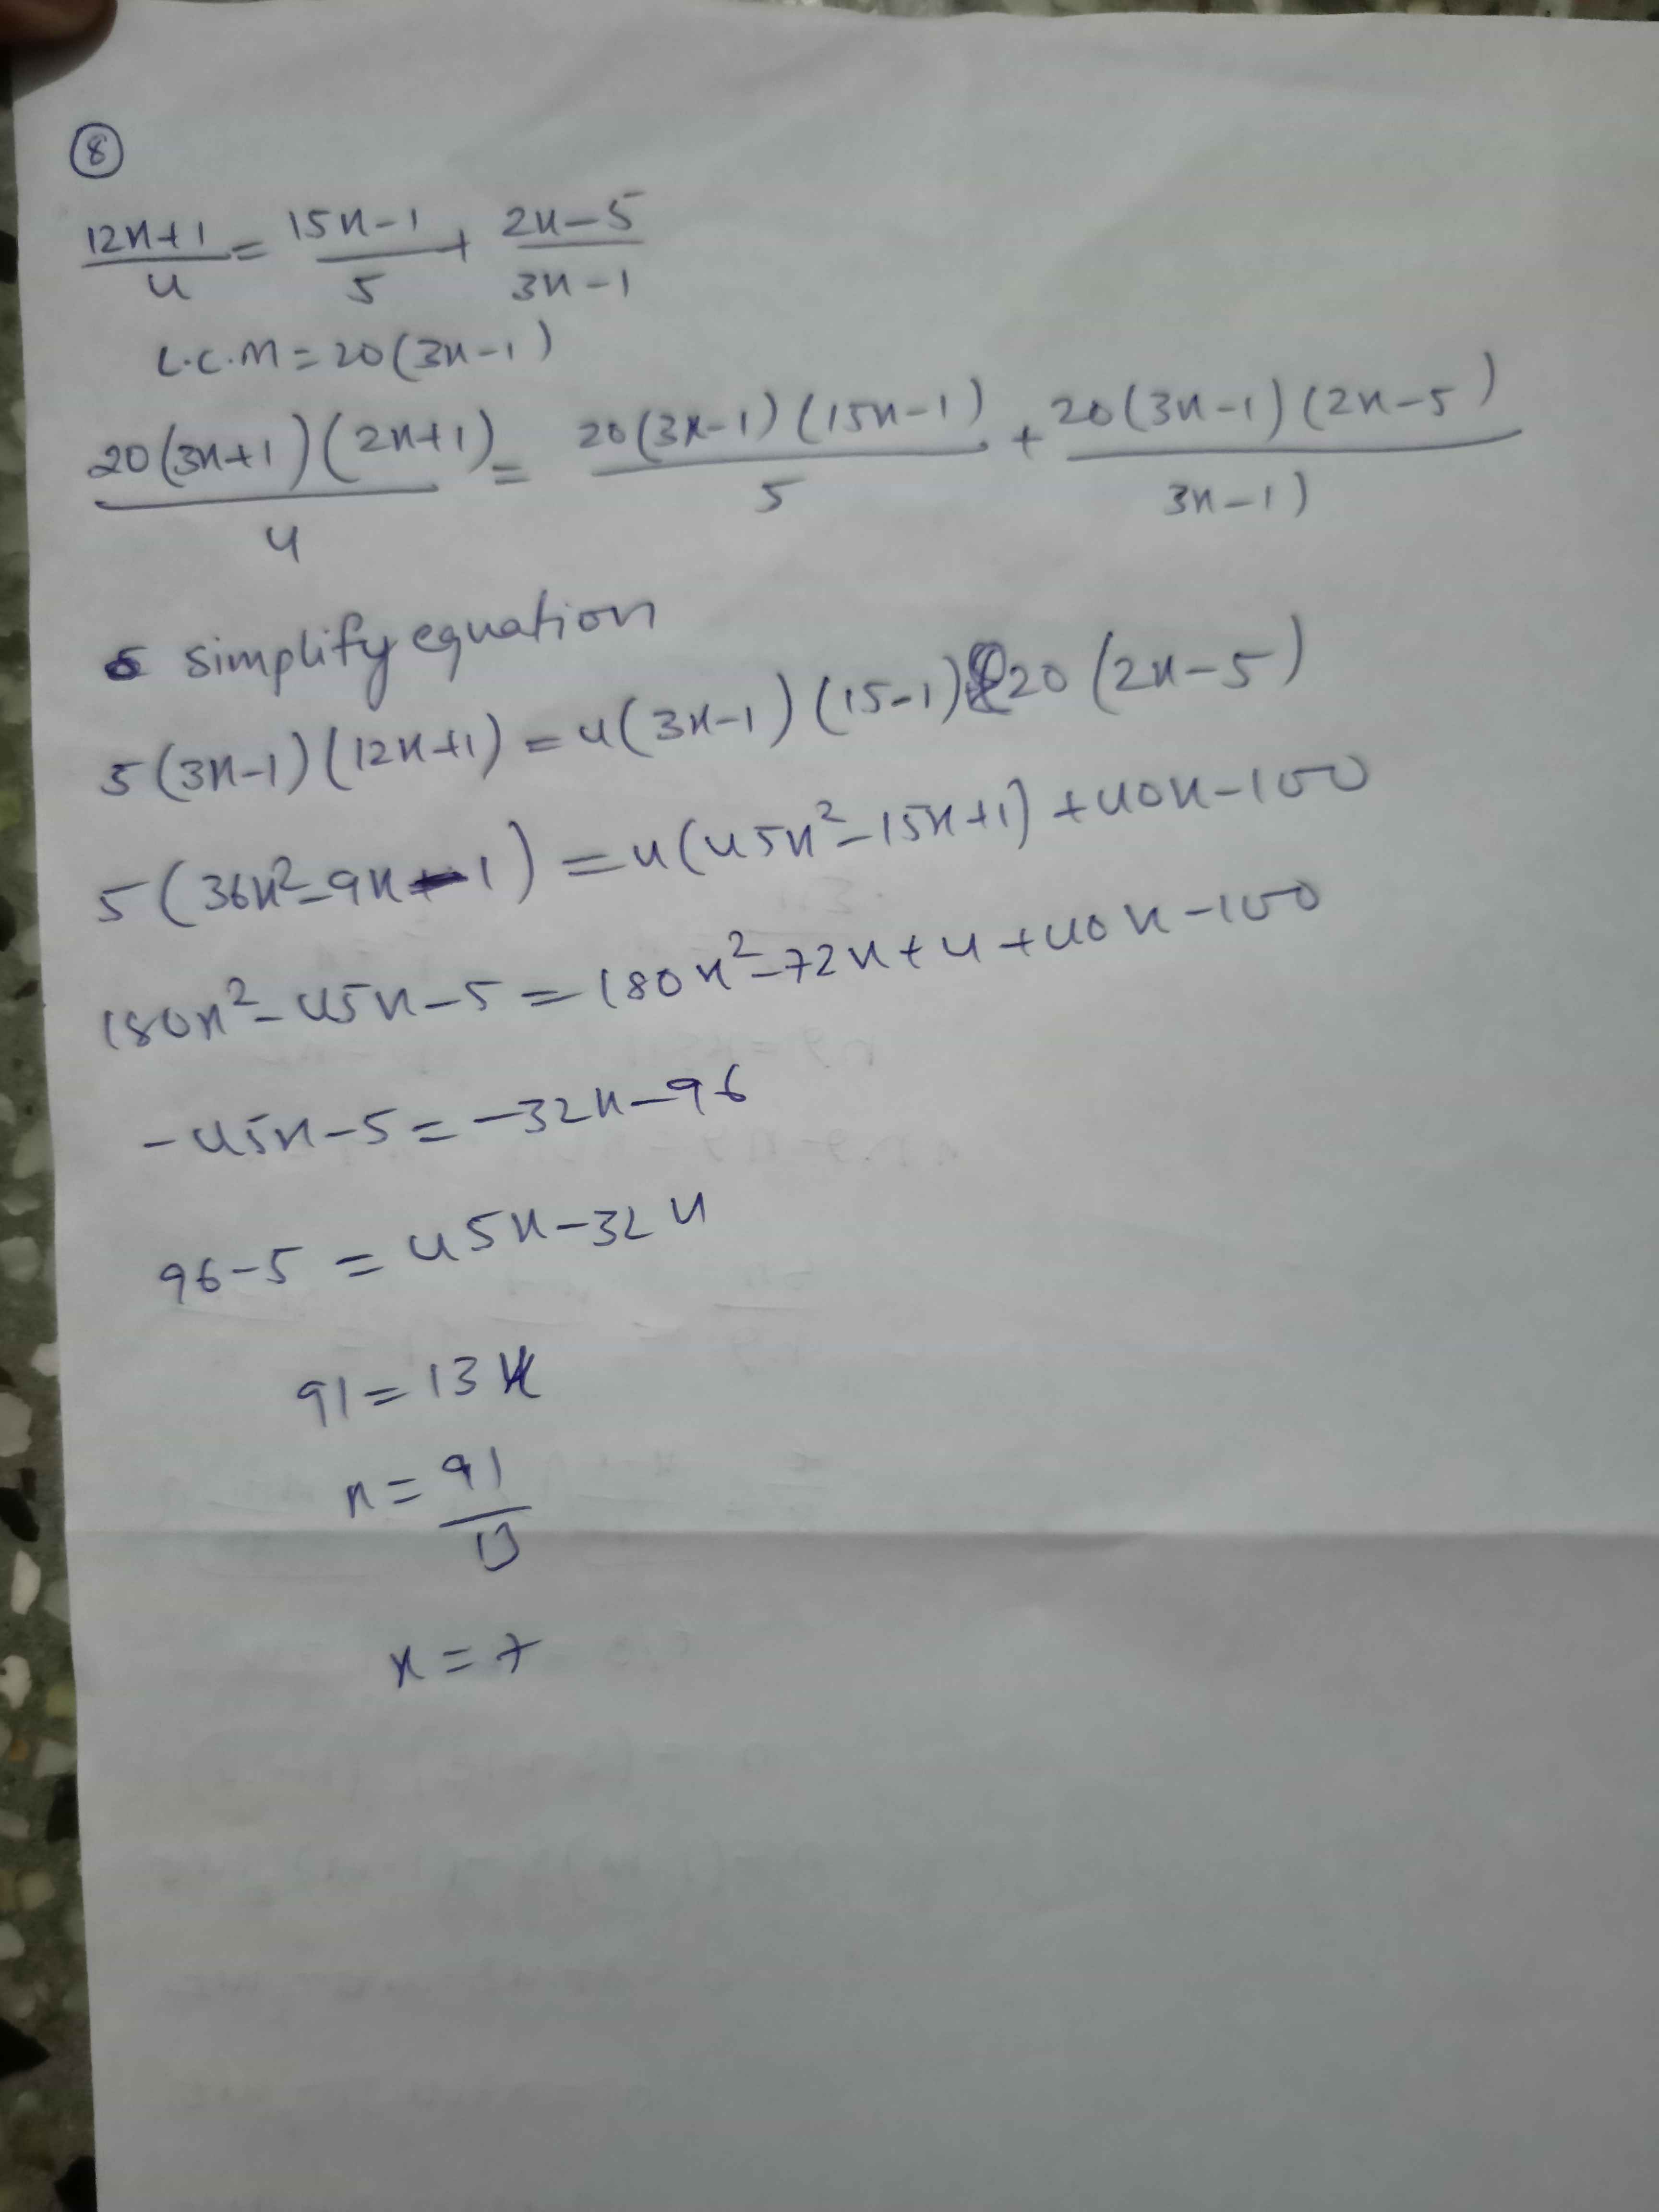 8
12x+1/4 = 15x-1/5 + 2x-5/3x-1
L.C.M = 20(3x-1)
20(3x+1)(2x+1)/4 = 20(3x-1)(15x-1)/5 + 20(3x-1)(2x-5)/3x-1)
simplify equation
5(3x-1)(12x+1) = 4(3x-1)(15-1) 20(2x-5)
5(36x²-9x-1) = 4(45x²-15x+1)+40x-100
180x²-45x-5 = 180x²-72x+4+40x-100
-45x-5 = -32x-96
96-5 = 45x-32x
91 = 13x
x = 91/13
x = 7